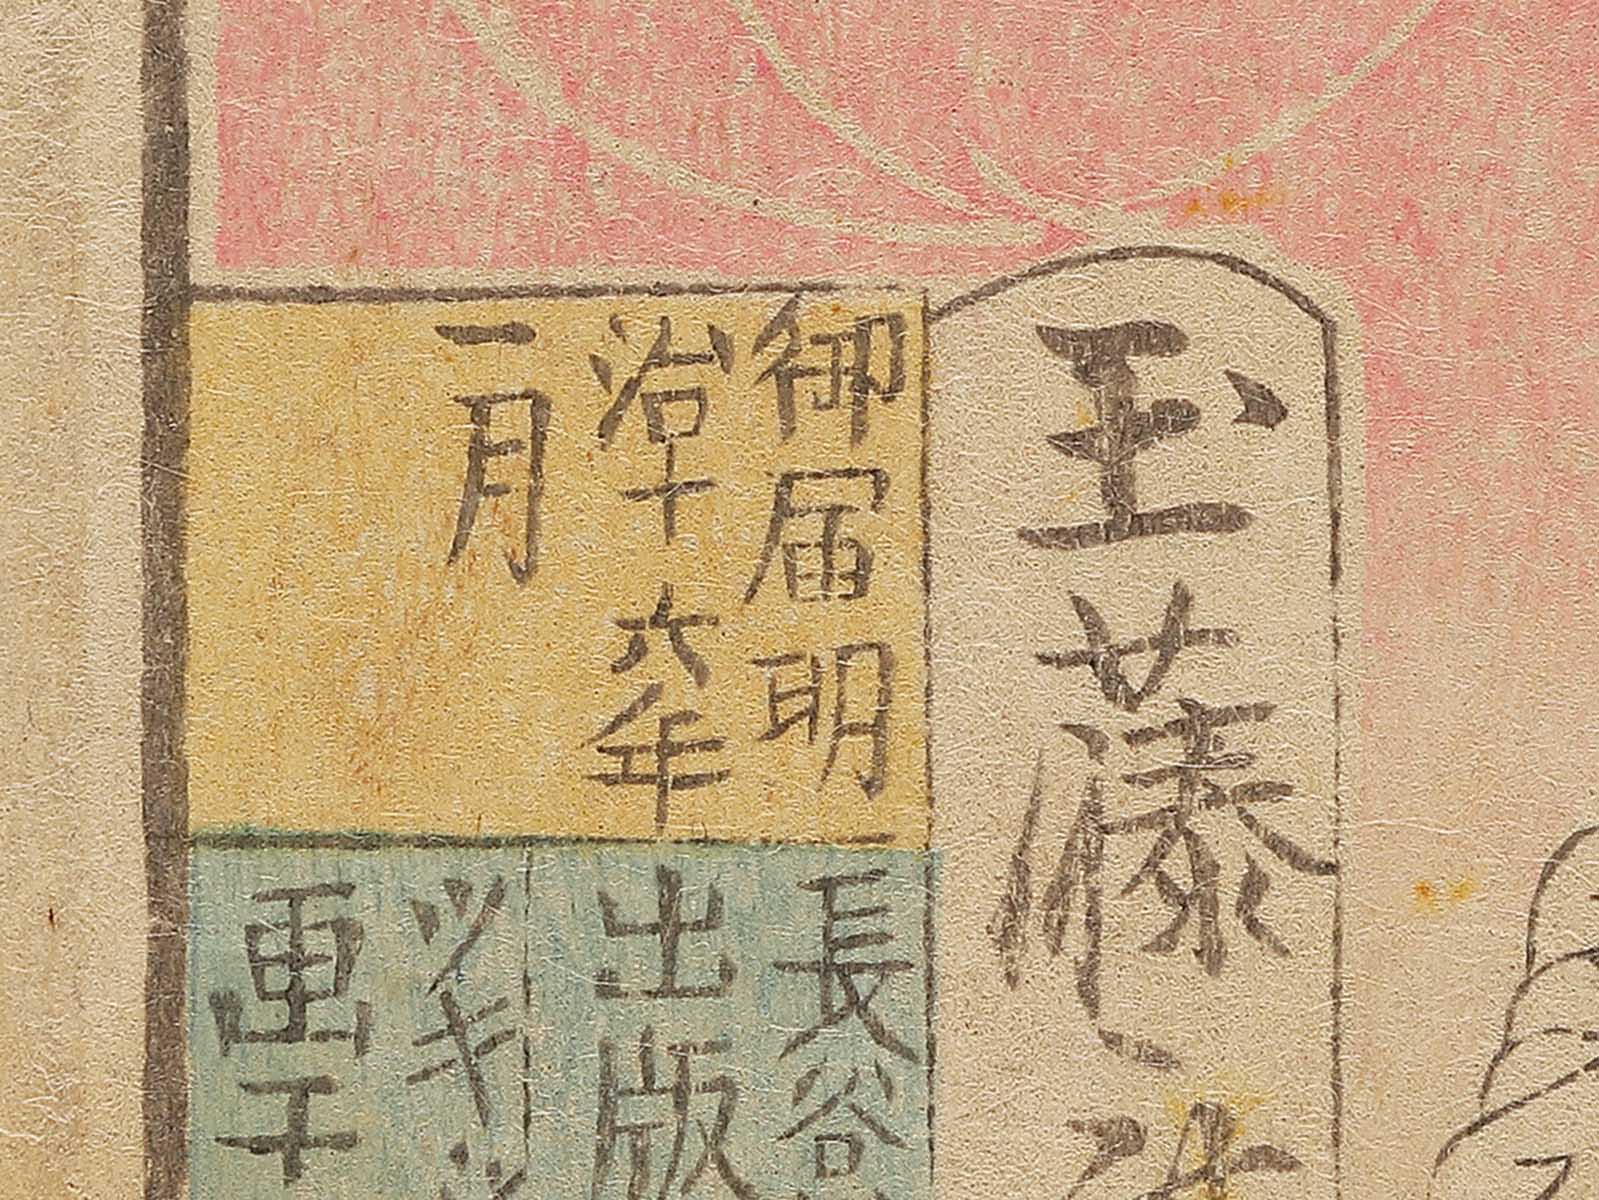 玉藤
御届明
治十六年
一月
長谷
出版
ツキ
画工